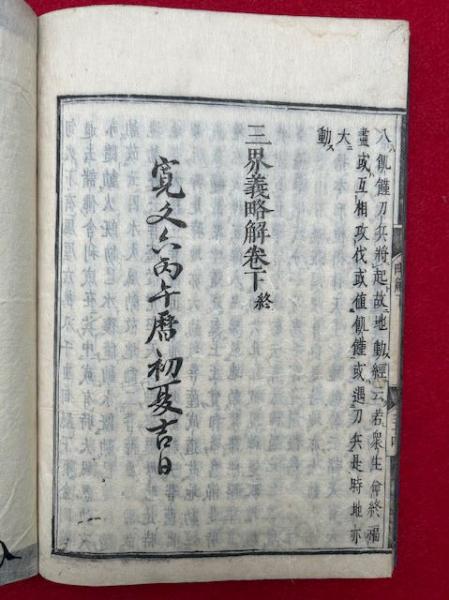 人飢饉刀兵將起故地動經云若衆生命終福
盡或互相攻伐或値飢饉或遇刀兵是時地亦
大動
三界義略解卷下終
寛文六丙午曆初夏吉日